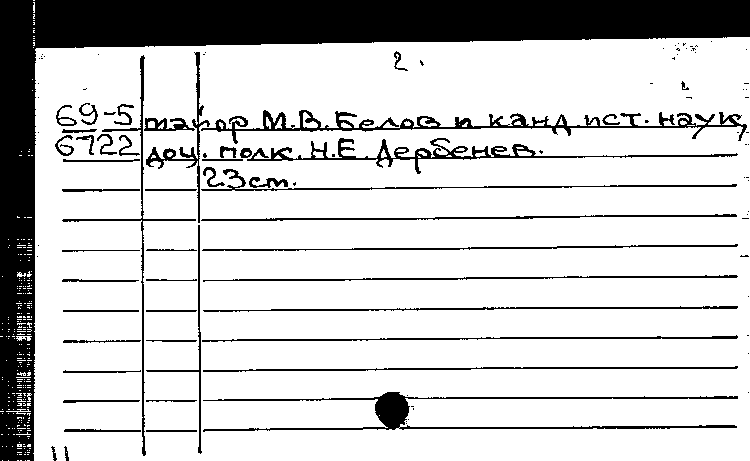 2.
69-5 майор М.В. Белов и канд ист. наук,
6722 доц. полк. Н.Е. Дербенев.
23 см.